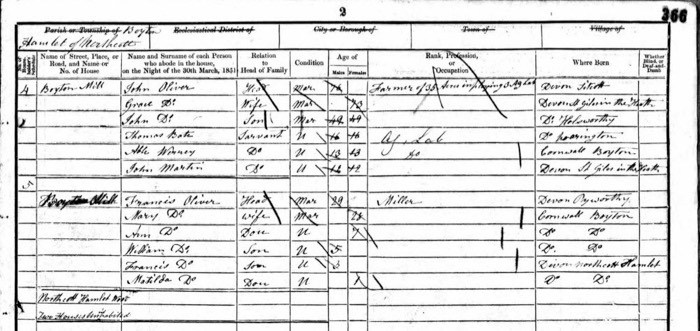 2
366
Parish or Township of Boyton Ecclesiastical District of City or Borough of Town of Village of
Hamlet of Northcott
Name of Street, Place, or Road, and Name or No. of House
Name and Surname of each Person who abode in the house, on the Night of the 30th March, 1851
Relation to Head of Family
Condition
Age of
Males Females
Rank, Profession, or Occupation
Where Born
Whether Blind, or Deaf-and-Dumb
4 Boyton Mill John Oliver Head Mar Farmer of 38 employing 3 Ag Lab Devon
Grace Do Wife Mar 73 Devon St Giles in the Heath
John Do Son Do Holsworthy
Thomas Servant U Ag Lab Do
Do U 13 Do Cornwall Boyton
John Martin Do U Devon St Giles in the Heath
5 Francis Oliver Head Mar 29 Miller Devon Pyworthy
Mary Do Wife Mar 28 Cornwall Boyton
Ann Do Daur U 7 Do Do
William Do Son U 5 Do Do
Francis Do Son U 3 Devon Northcott Hamlet
Matilda Do Daur U Do Do
Northcott Hamlet
Two Houses Uninhabited